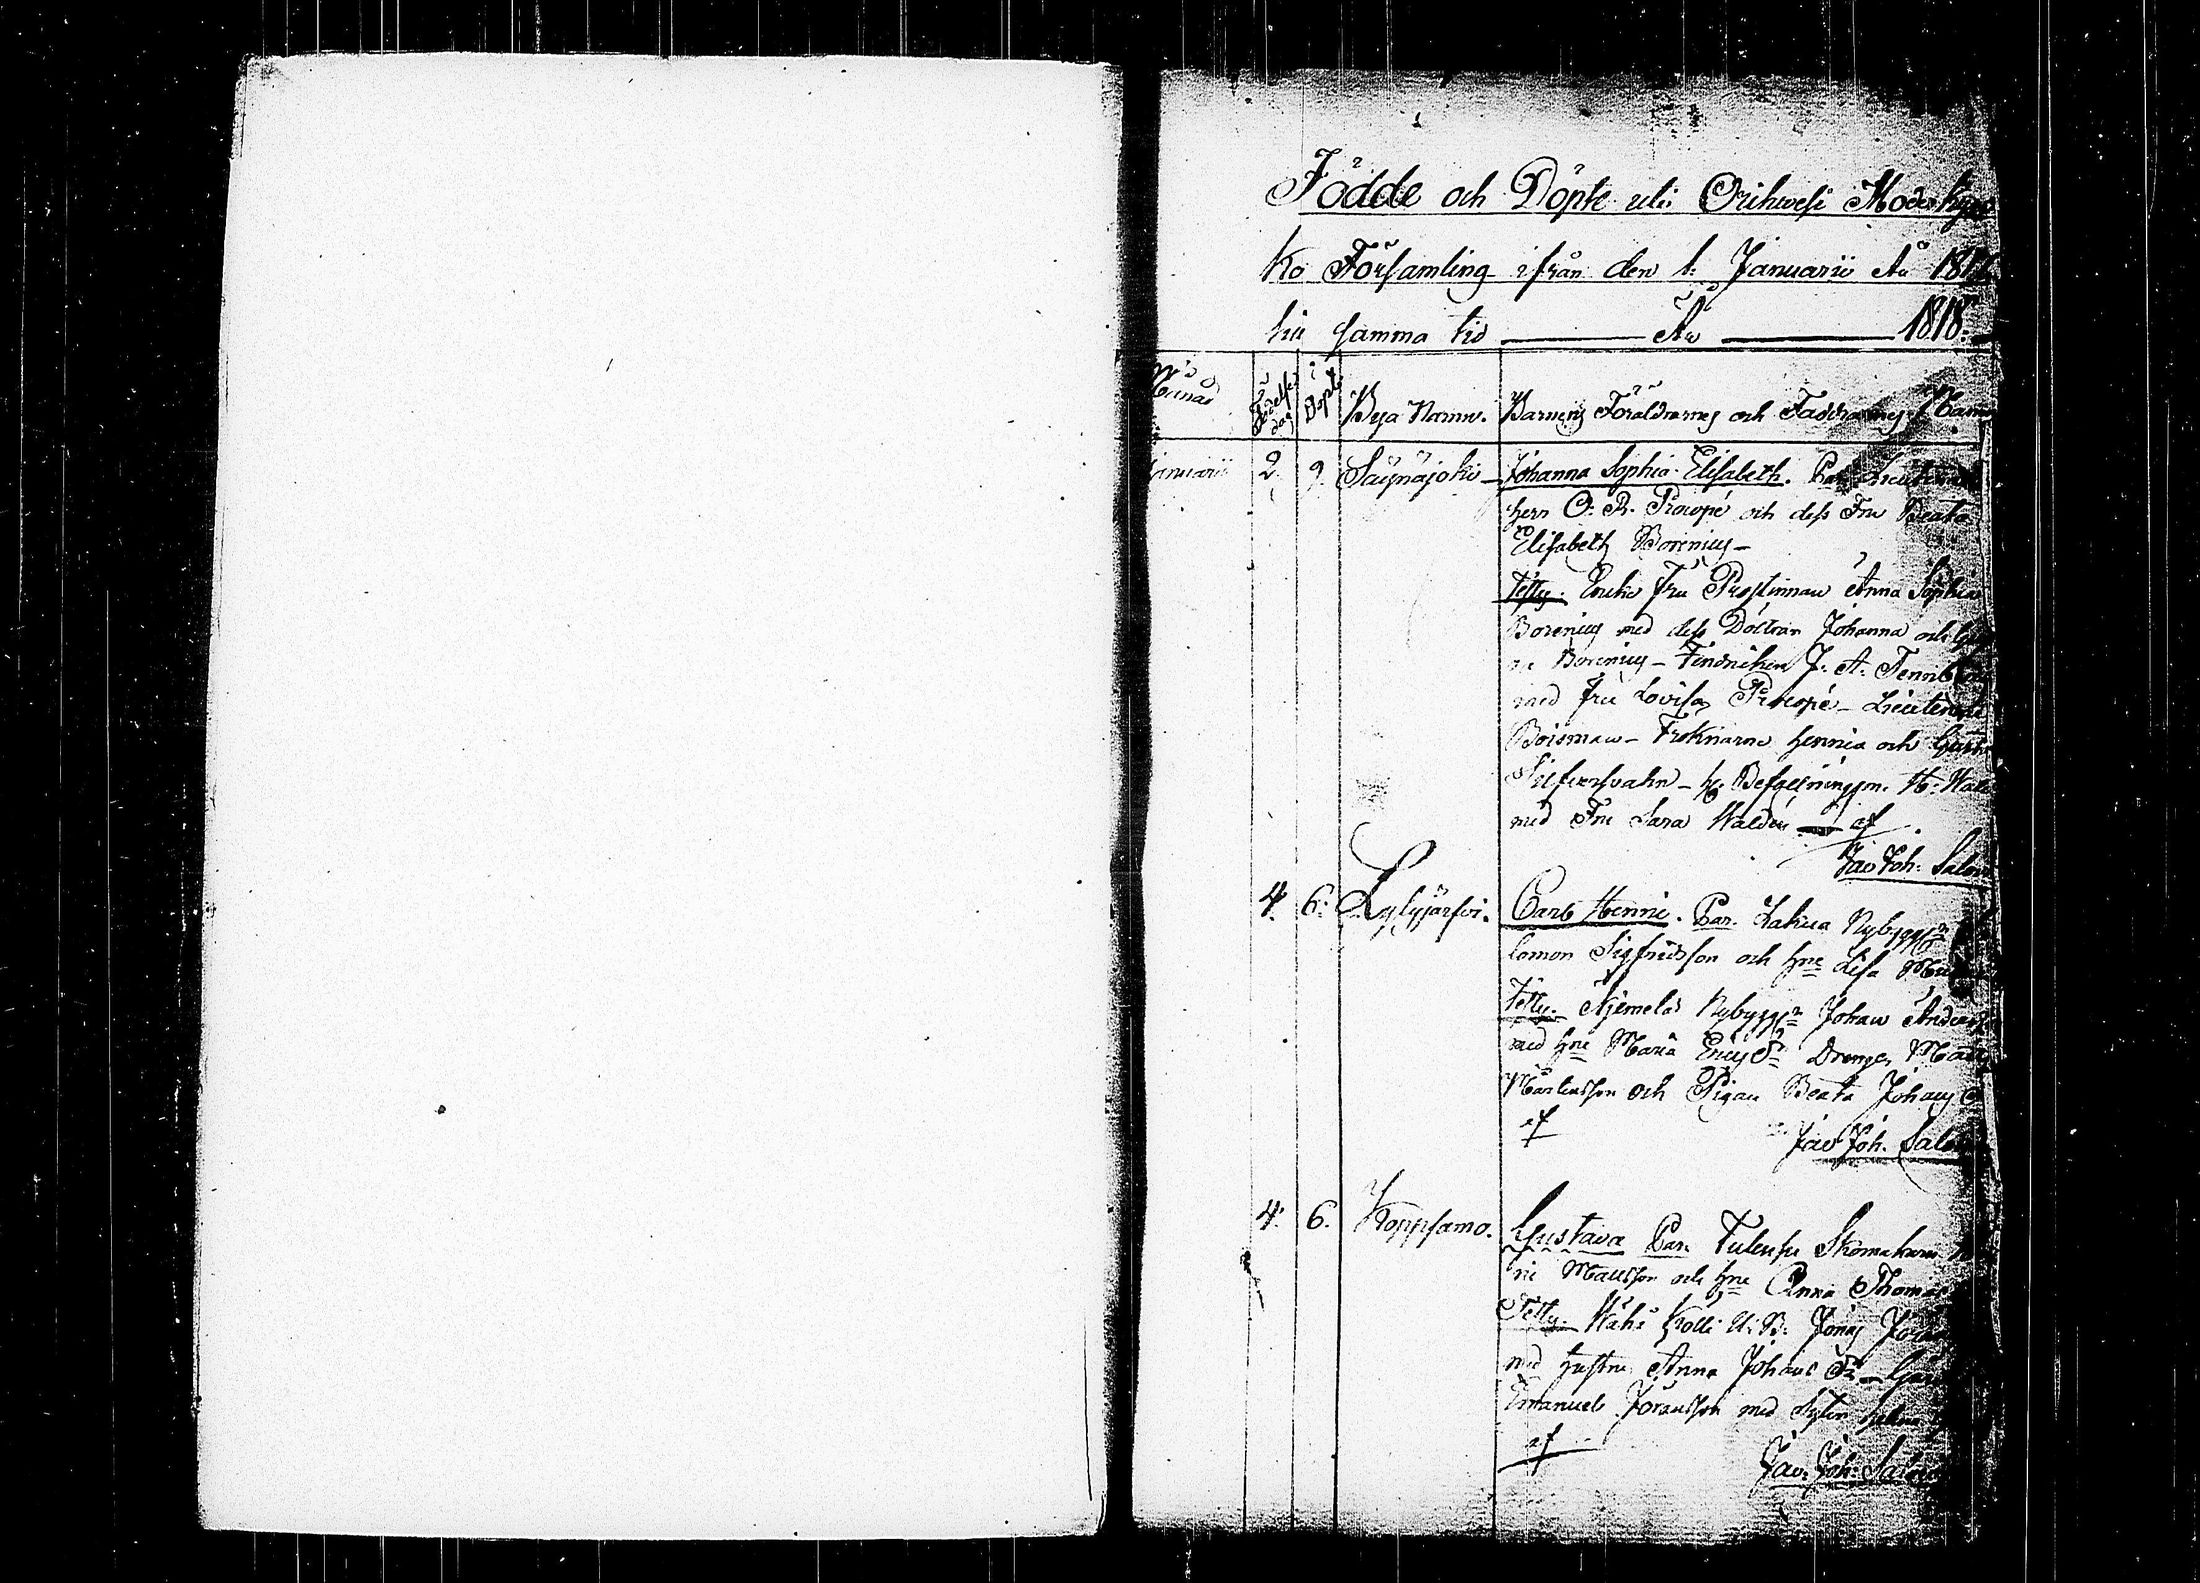 Födde och Döpte uti Orihwesi Moderkyr
ko Församling ifrån den 1: Januarii År
till samma tid År 1818.
Månad Födelse dag Döpt Bya Namn. Barnens Föräldrarnes och Faddrarnes Namn
Januarii 2. 9. Säynäjoki Johanna Sophia Elisabeth. Par. Lieutenant
Herr C: R. Procopé och dess Fru Beata
Elisabeth Borenius
Test. Enke Fru Prostinnan Anna Sophia
Borenius med dess Döttrar Johanna och
Borenius Fendriken J: A. Tennberg
med Fru Lovisa Procopé Lieutenant
Boisman Fröknarne Hennica och
Silfversvahn H: Befallningsm. H: Wald
med Fru Sara Waldén af
Jac Joh: Salon
4. 6: Lylyjärfvi. Carl Henric. Par. Lakua Nybygg:
lomon Sigfridsson och Hne Lisa
Test. Njemelä Nybygg: Johan Anders
med Hne Maria Erics D: Drenge Matts
Mårtensson och Pigan Beata Johans D
af
Jac Joh. Salon
4. 6. Koppsamo. Gustava Par. Tulensu Skomakaren
ric Matsson och Hne Anna Thomas
Test. Wähä Krolli U: B: Jonas Jöran
med Hustru Anna Johans D:
Emanuel Jöransson med Syster Helena
af
Jac: Joh: Salon